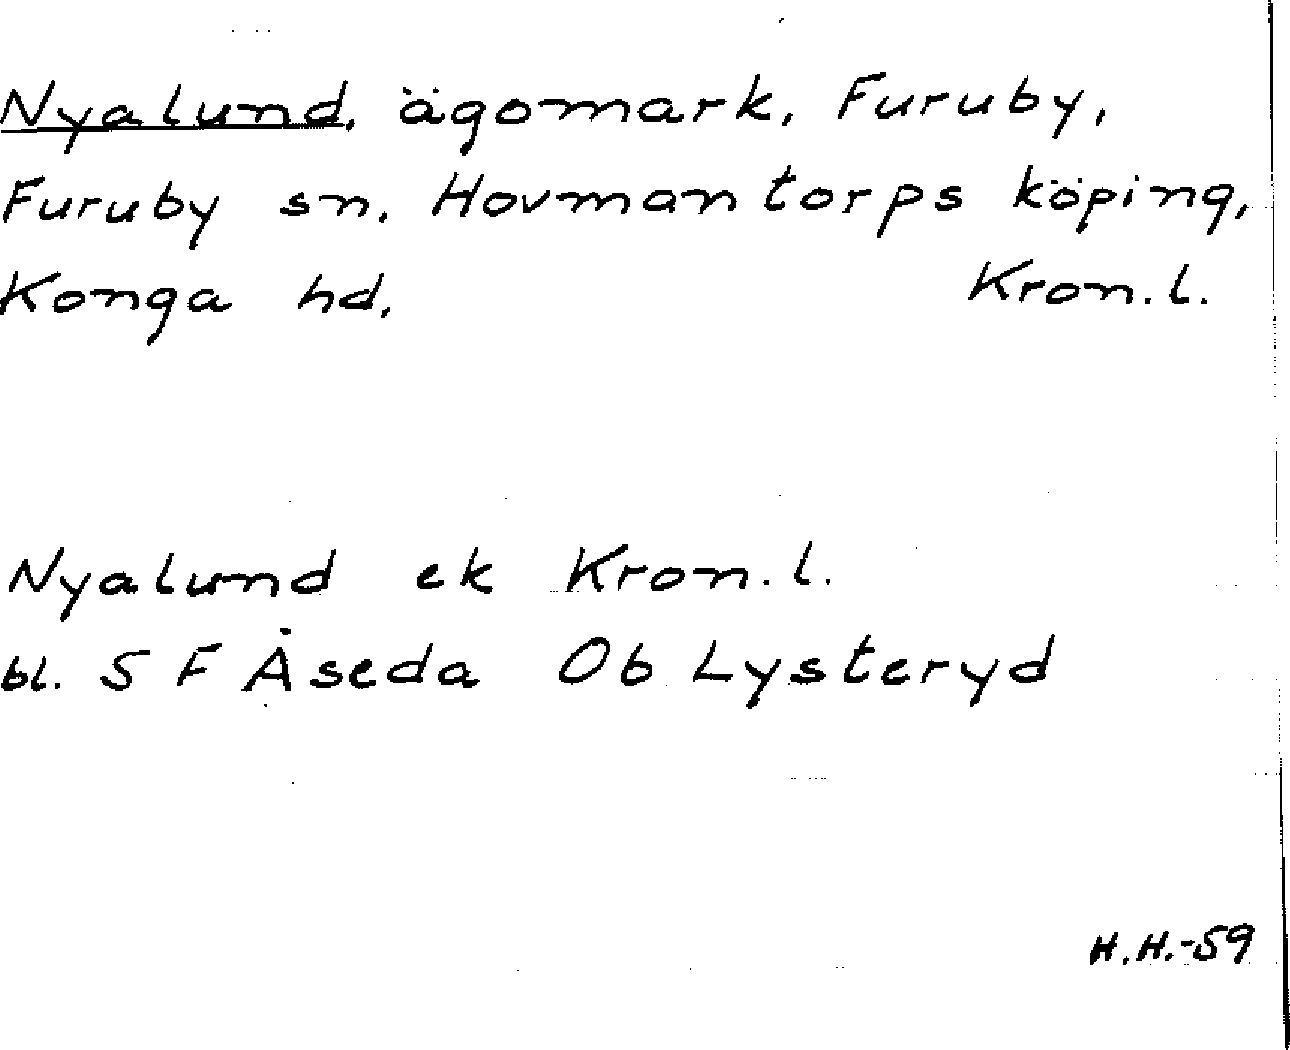 Nyalund, ägomark, Furuby,
Furuby sn, Hovmantorps köping,
Konga hd, Kron.l.
Nyalund ek Kron.l.
bl. S F Åseda Ob Lysteryd
H.H.-59